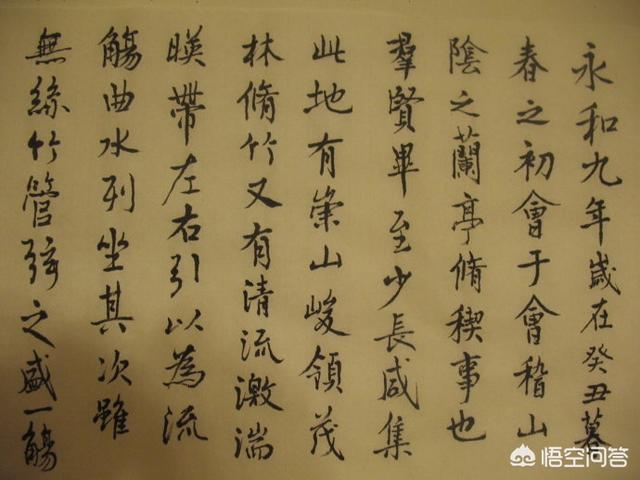 永和九年歲在癸丑暮
春之初會于會稽山
陰之蘭亭脩稧事也
羣賢畢至少長咸集
此地有崇山峻領茂
林脩竹又有清流激湍
暎帶左右引以為流
觴曲水列坐其次雖
無絲竹管弦之盛一觴
悟空问答